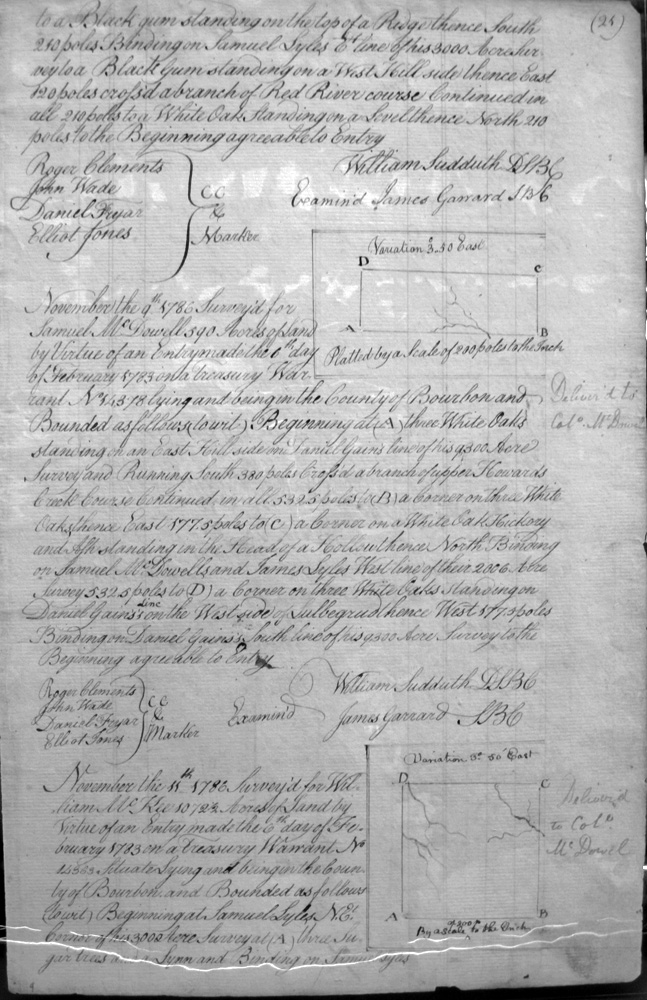 (25)
to a Black gum standing on the top of a Ridge thence South
210 poles Binding on Samuel Lyles Et line of his 3000 Acre Sur-
vey to a Black Gum standing on a West Hill side thence East
120 poles cross'd a branch of Red River course Continued in
all 210 poles to a White Oak standing on a Level thence North 210
poles to the Beginning agreeable to Entry
Roger Clements
John Wade
Daniel Fryar
Elliot Jones
CC
&
Marker
William Sudduth DSBC
Examin'd James Garrard SBC
Variation 3-50 East
D
C
A
B
Platted by a Scale of 200 poles to the Inch
November the 9th 1786 Survey'd for
Samuel McDowell 590 Acres of Land
by Virtue of an Entry made the 6th day
of February 1783 on a treasury War-
rant No 14378 lying and being in the County of Bourbon and
Bounded as follows (towit) Beginning at (A) three White Oaks
standing on an East Hill side on Daniel Gains line of his 9300 Acre
Survey and Running South 380 poles Cross'd a branch of upper Howards
Creek Course Continued in all 532.5 poles to (B) a Corner on three White
Oaks thence East 177.5 poles to (C) a Corner on a White Oak Hickory
and Ash standing in the Head of a Hollow thence North Binding
on Samuel McDowells and James Lyles West line of their 2006 Acre
Survey 532.5 poles to D) a Corner on three White Oakes standing on
Daniel Gains's line on the West side of Lulbegrud thence West 177.5 poles
Binding on Daniel Gains's South line of his 9300 Acre Survey to the
Beginning agreeable to Entry
Deliver'd to
Colo McDowel
Roger Clements
John Wade
Daniel Fryar
Elliot Jones
CC
&
Marker
Examin'd
William Sudduth DSBC
James Garrard SBC
Variation 3° 50' East
D
C
A
B
of 300 ps
By a scale to the Inch
November the 11th 1786 Survey'd for Wil-
liam McKee 10723 Acres of Land by
Virtue of an Entry made the 6th day of Fe-
bruary 1783 on a treasury Warrant No
Situate Lying and being in the Coun-
ty of Bourbon and Bounded as follows
(towit) Beginning at Samuel Lyles N.Et
Corner of his 3000 Acre Survey at (A) three Su-
gar trees and a Lynn and Binding on Samuel Lyles
Deliver'd
to Colo
McDowel